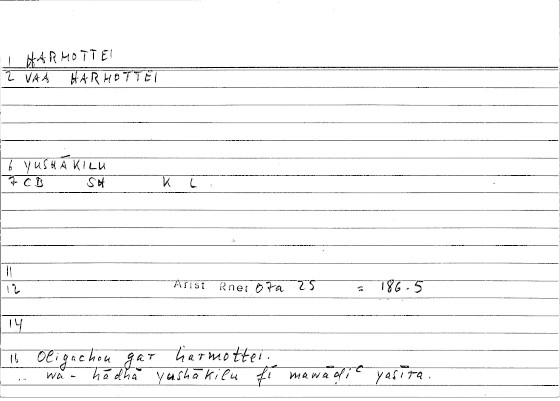 1 HARMOTTEI
2 VAA HARMOTTEI
6 YUSHĀKILU
7 CB SH K L .
11
12 Arist Rhet 07a 25 = 186.5
14
15 Oligachou gar harmottei.
.. wa- hādhā yushākilu fī mawāḍiʿ yasīra.